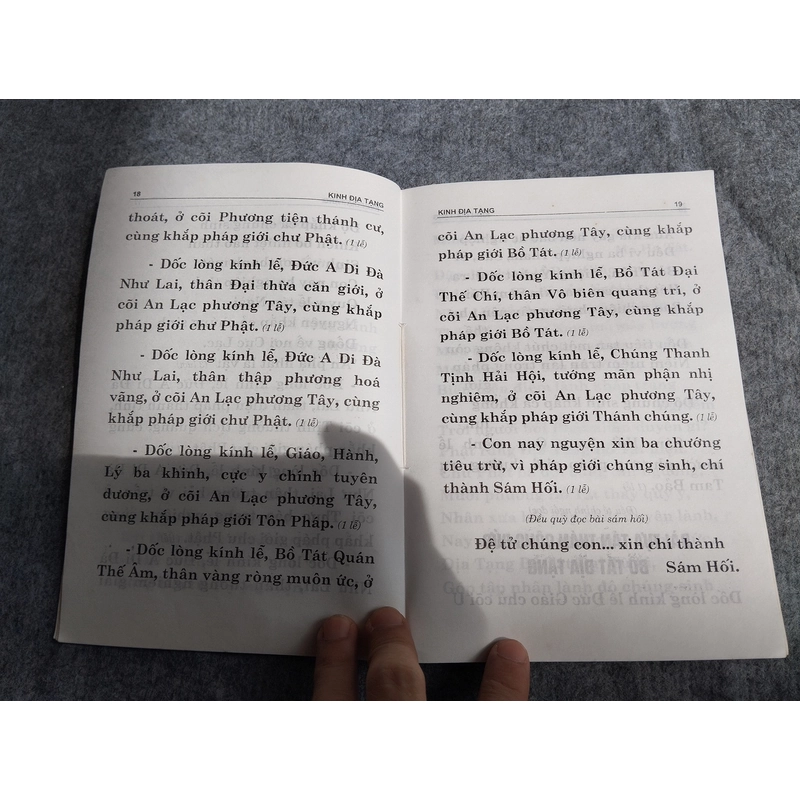 18
KINH ĐỊA TẠNG
thoát, ở cõi Phương tiện thánh cư,
cùng khắp pháp giới chư Phật. (1 lễ)
- Dốc lòng kính lễ, Đức A Di Đà
Như Lai, thân Đại thừa căn giới, ở
cõi An Lạc phương Tây, cùng khắp
pháp giới chư Phật. (1 lễ)
- Dốc lòng kính lễ, Đức A Di Đà
Như Lai, thân thập phương hoá
vãng, ở cõi An Lạc phương Tây, cùng
khắp pháp giới chư Phật. (1 lễ)
- Dốc lòng kính lễ, Giáo, Hành,
Lý ba khinh, cực y chính tuyên
dương, ở cõi An Lạc phương Tây,
cùng khắp pháp giới Tôn Pháp. (1 lễ)
- Dốc lòng kính lễ, Bồ Tát Quán
Thế Âm, thân vàng ròng muôn ức, ở
KINH ĐỊA TẠNG
19
cõi An Lạc phương Tây, cùng khắp
pháp giới Bồ Tát. (1 lễ)
- Dốc lòng kính lễ, Bồ Tát Đại
Thế Chí, thân Vô biên quang trí, ở
cõi An Lạc phương Tây, cùng khắp
pháp giới Bồ Tát. (1 lễ)
- Dốc lòng kính lễ, Chúng Thanh
Tịnh Hải Hội, tướng mãn phận nhị
nghiêm, ở cõi An Lạc phương Tây,
cùng khắp pháp giới Thánh chúng. (1 lễ)
- Con nay nguyện xin ba chướng
tiêu trừ, vì pháp giới chúng sinh, chí
thành Sám Hối. (1 lễ)
(Đều quỳ đọc bài sám hối)
Đệ tử chúng con... xin chí thành
Sám Hối.